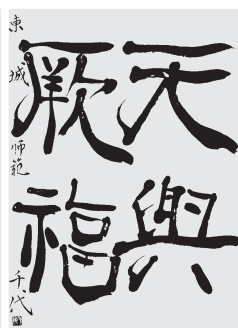 天與
厥福
東城师範 千代